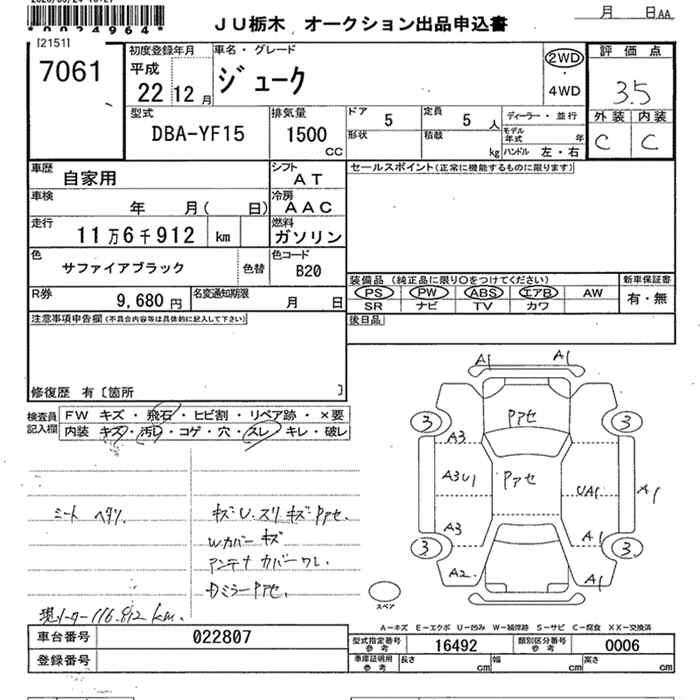 *0024964*
JU栃木 オークション出品申込書
月 日 AA
[2151]
7061
初度登録年月
平成
22 12 月
車名・グレード
ジューク
2WD
・
4WD
評価点
3.5
外装 内装
C C
型式
DBA-YF15
排気量
1500
CC
ドア 5
定員 5 人
形状
積載 kg
ディーラー・並行
モデル年式 年
ハンドル 左・右
車歴
自家用
シフト
AT
セールスポイント(正常に機能するものに限ります)
車検
年 月( 日)
冷房
AAC
走行
11万6千912 km
燃料
ガソリン
色
サファイアブラック
色替
色コード
B20
R券
9,680 円
名変通知期限
月 日
装備品 (純正品に限り○をつけてください)
PS PW ABS エアB AW
SR ナビ TV カワ
新車保証書
有・無
注意事項申告欄(不具合内容等は具体的に記入して下さい)
後日品
修復歴 有〔箇所 〕
検査員記入欄
FW キズ・飛石・ヒビ割・リペア跡・×要
内装 キズ・汚れ・コゲ・穴・スレ・キレ・破レ
A1 A1
Pアセ
3 3
A3
A3U1
Pアセ
UA1
A1
A3
A1
3 3
A2
A1
スペア
シート ヘタリ
キズU.スリキズPアセ.
Wカバーキズ
アンテナカバーワレ.
DミラーPアセ.
現メーター116.912km.
A-キズ E-エクボ U-凹み W-補修跡 S-サビ C-腐食 XX-交換済
車台番号
022807
型式指定番号
参考
16492
類別区分番号
参考
0006
登録番号
車庫証明用
参考
長さ cm
幅 cm
高さ cm